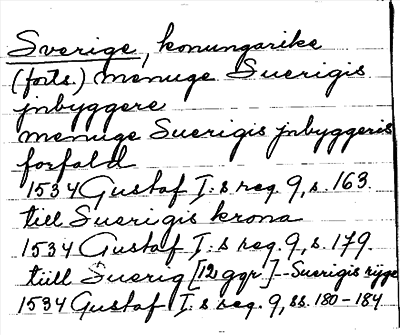 Sverige, konungarike
(forts.) menuge Suerigis
jnbyggere
menuge Suerigis jnbyggeris
forfald
1534 Gustaf I:s reg. 9, s. 163.
till Suerigis krona
1534 Gustaf I:s reg. 9, s. 179.
tiill Suerig [12 ggr.] -- Suerigis rijge
1534 Gustaf I:s reg. 9, ss. 180-184